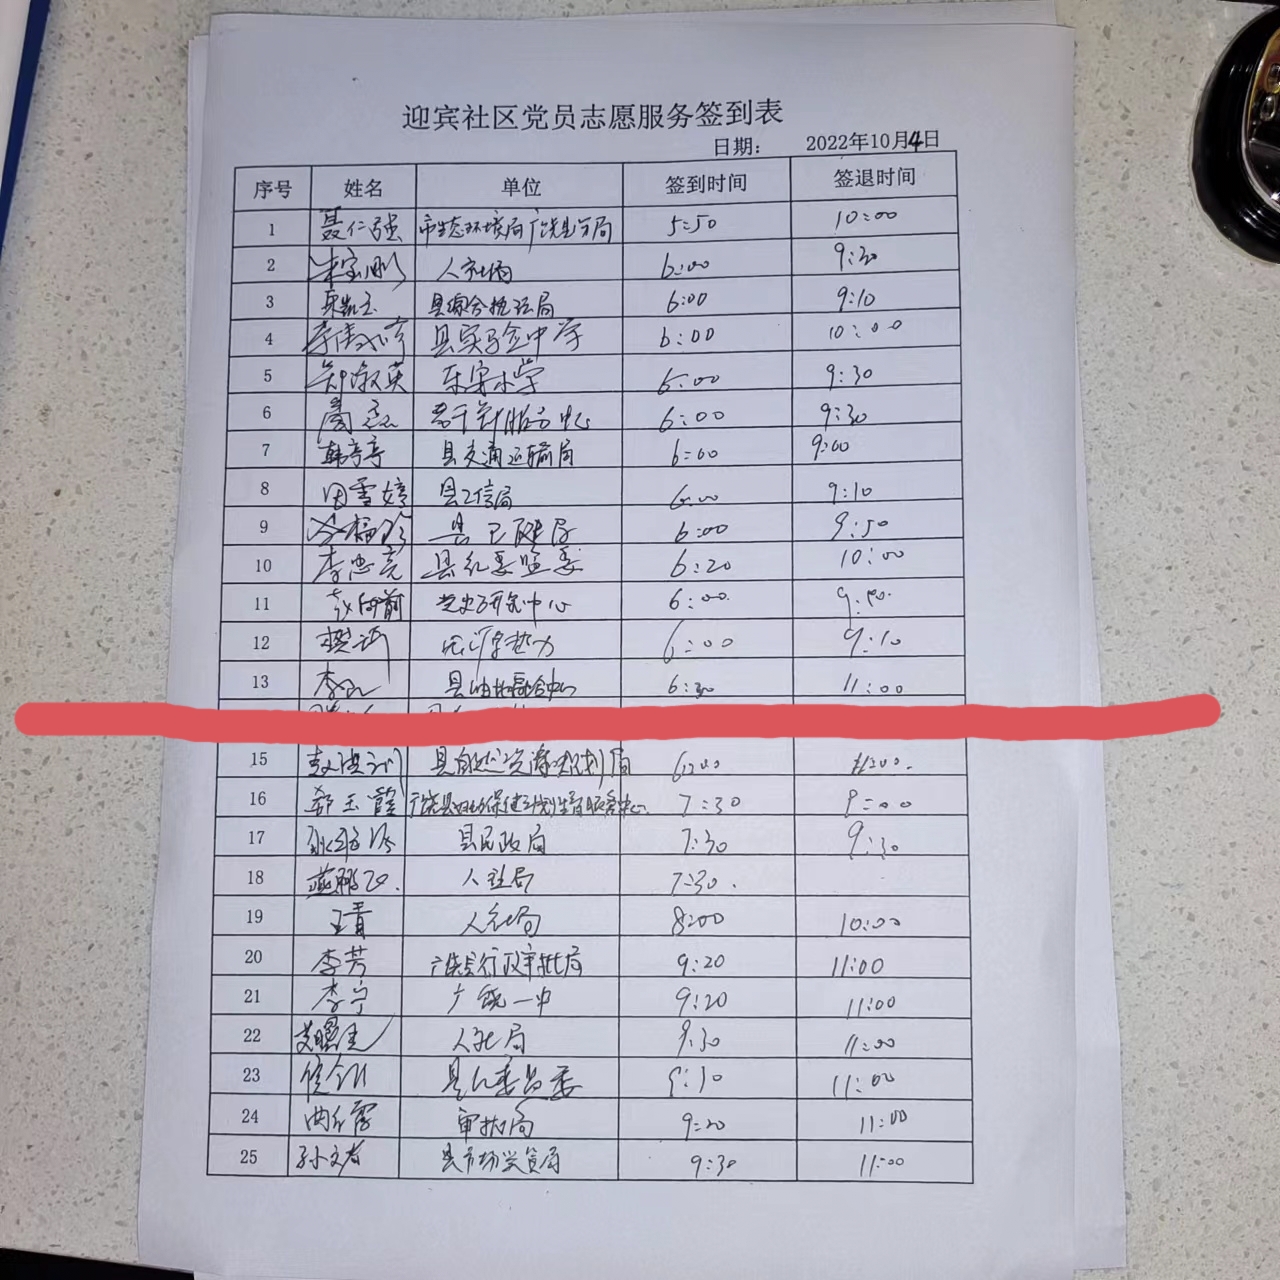 迎宾社区党员志愿服务签到表
日期： 2022年10月4日
序号 姓名 单位 签到时间 签退时间
1 聂仁强 市生态环境局广饶县分局 5:50 10:00
2 人社局 6:00 9:30
3 县综合执法局 6:00 9:10
4 县实验中学 6:00 10:00
5 郑淑英 乐安小学 6:00 9:30
6 6:00 9:30
7 韩亭亭 县交通运输局 6:00 9:00
8 田雪婷 县工信局 6:00 9:10
9 县卫健局 6:00 9:50
10 李忠亮 县纪委监委 6:20 10:00
11 赵向前 党史研究中心 6:00
12 热力 6:00 9:10
13 李 县 融合中心 6:30 11:00
15 赵洪 县自然资源规划局 6:00 11:00
16 郭玉霞 广饶县妇幼保健计划生育服务中心 7:30 9:00
17 县民政局 7:30 9:30
18 燕鹏飞 人社局 7:30
19 王青 人社局 8:00 10:00
20 李芳 广饶县行政审批局 9:20 11:00
21 李宁 广饶一中 9:20 11:00
22 人社局 9:30 11:00
23 县纪委监委 9:30 11:00
24 审批局 9:20 11:00
25 孙文春 县市场监管局 9:30 11:00